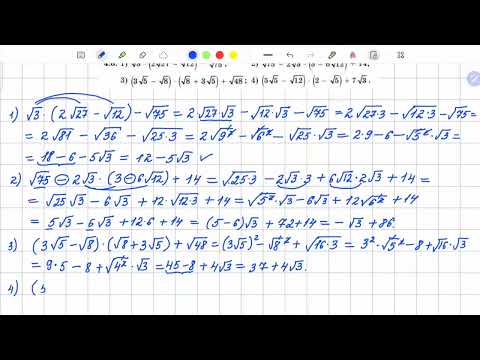 3) (3√5 − √8) · (√8 + 3√5) + √48 ; 4) (5√5 − √12) · (2 − √5) + 7√3 .
1) √3 · (2√27 − √12) − √75 = 2√27·√3 − √12·√3 − √75 = 2√27·3 − √12·3 − √75 =
= 2√81 − √36 − √25·3 = 2√9² − √6² − √25·√3 = 2·9 − 6 − √5²·√3 =
= 18 − 6 − 5√3 = 12 − 5√3 ✓
2) √75 − 2√3 · (3 − 6√12) + 14 = √25·3 − 2√3·3 + 6√12·2√3 + 14 =
= √25·√3 − 6√3 + 12·√12·3 + 14 = √5²·√3 − 6√3 + 12√6² + 14
= 5√3 − 6√3 + 12·6 + 14 = (5−6)√3 + 72 + 14 = −√3 + 86.
3) (3√5 − √8) · (√8 + 3√5) + √48 = (3√5)² − √8² + √16·3 = 3²·√5² − 8 + √16·√3
= 9·5 − 8 + √4²·√3 = 45 − 8 + 4√3 = 37 + 4√3.
4) (